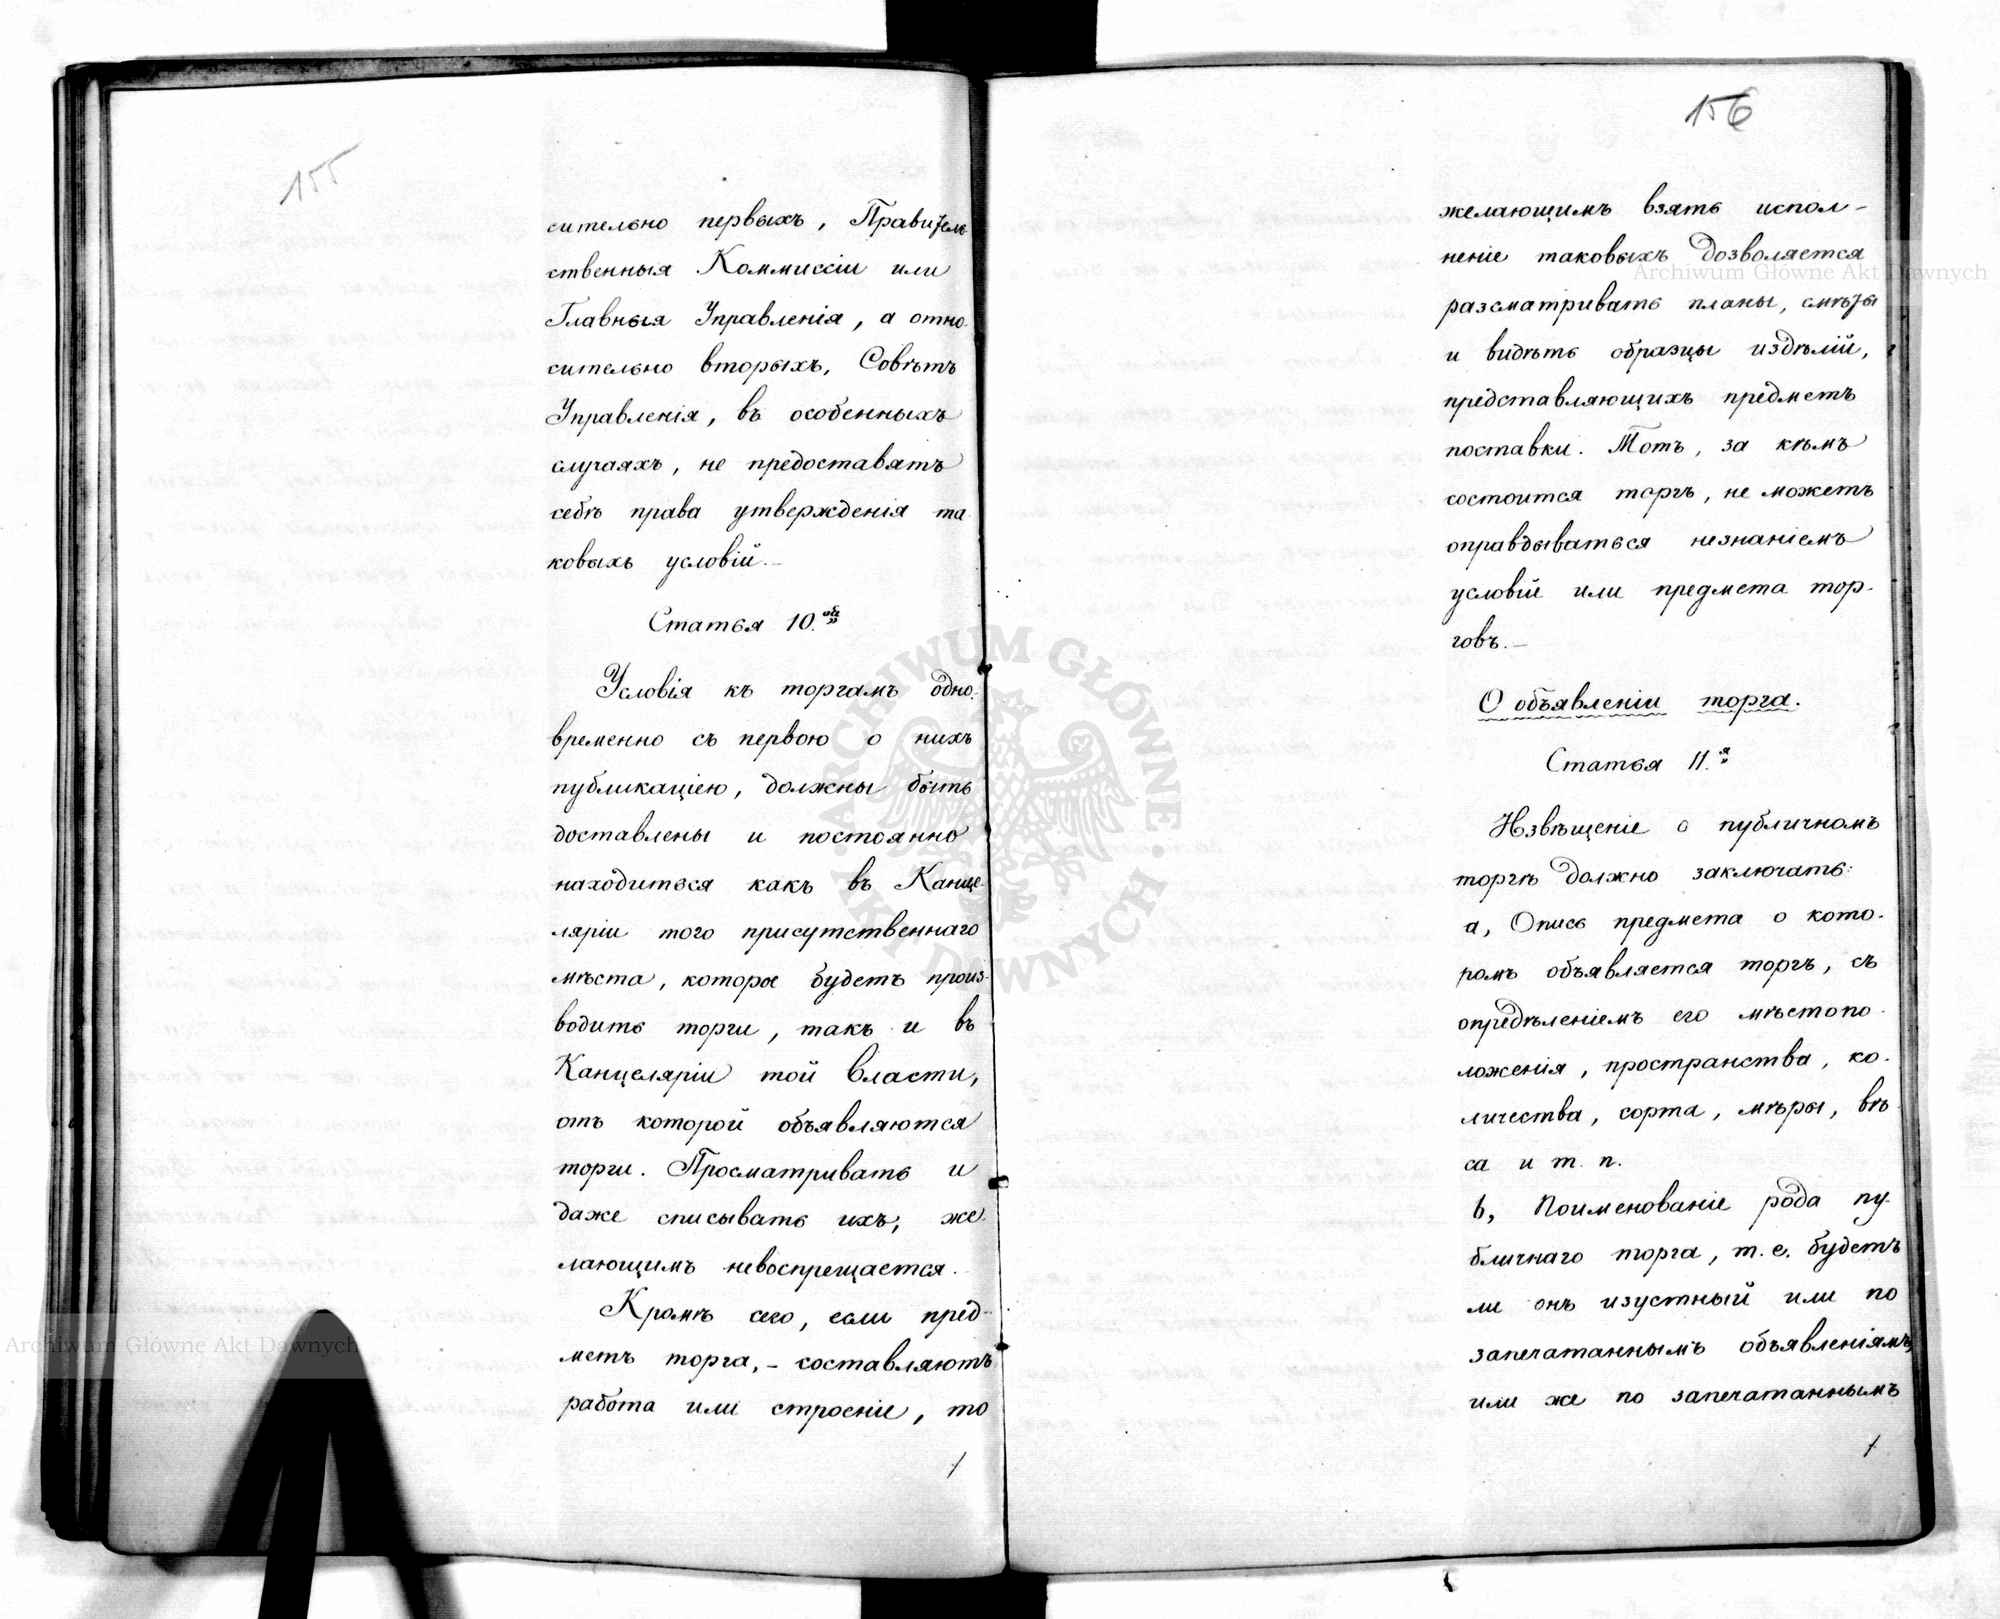 155
сительно первыхъ, Правитель
ственныя Коммиссіи или
Главныя Управленія, а отно-
сительно вторыхъ, Совѣтъ
Управленія, въ особенныхъ
случаяхъ, не предоставятъ
себѣ права утвержденія та
ковыхъ условій.—
Статья 10.
Условія къ торгамъ одно-
временно съ первою о нихъ
публикаціею, должны быть
доставлены и постоянно
находиться какъ въ Канце-
ляріи того присутственнаго
мѣста, которы будетъ произ-
водить торги, такъ и въ
Канцеляріи той власти,
отъ которой объявляются
торги. Просматривать и
даже списывать ихъ, же-
лающимъ невоспрещается.
Кромѣ сего, если пред-
метъ торга, — составляютъ
работа или строеніе, то
156
желающимъ взять испол-
неніе таковыхъ дозволяется
разсматривать планы, смѣты
и видѣть образцы издѣлій,
представляющихъ предметъ
поставки. Тотъ, за кѣмъ
состоится торгъ, не можетъ
оправдываться незнаніемъ
условій или предмета тор-
говъ.—
О объявленіи торга.
Статья 11.я
Извѣщеніе о публичномъ
торгѣ должно заключать:
а, Опись предмета о кото-
ромъ объявляется торгъ, съ
опредѣленіемъ его мѣстопо-
ложенія, пространства, ко-
личества, сорта, мѣры, вѣ
са и т. п.
b, Поименованіе рода пу-
бличнаго торга, т. е. будетъ
ли онъ изустный или по
запечатаннымъ объявленіямъ,
или же по запечатаннымъ
Archiwum Główne Akt Dawnych
Archiwum Główne Akt Dawnych
ARCHIWUM GŁÓWNE · AKT DAWNYCH ·